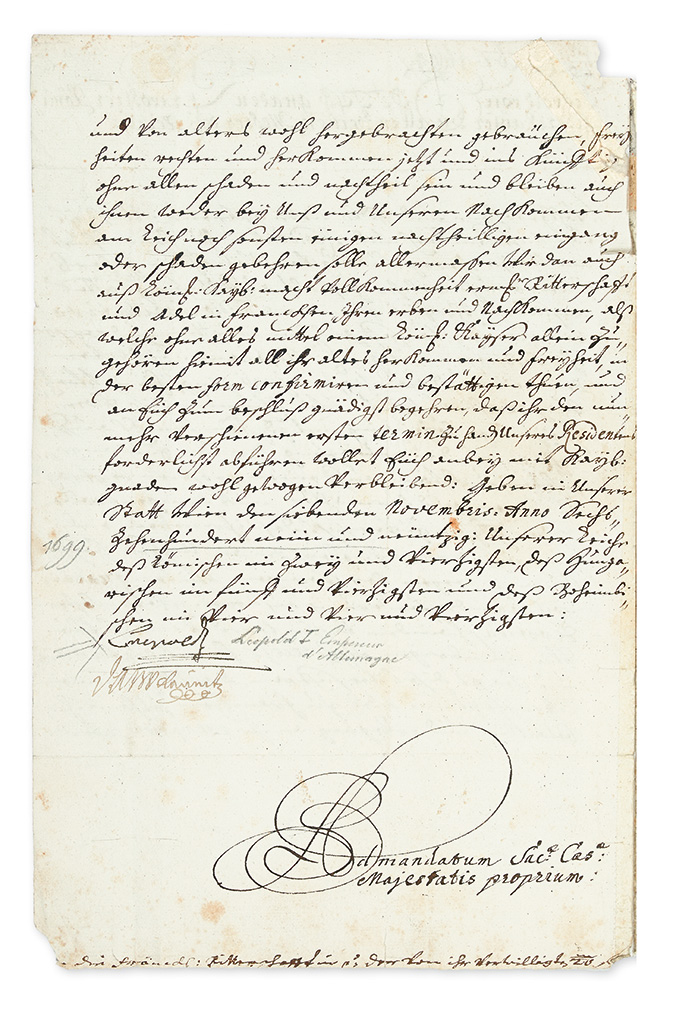 und von alters wohl hergebrachten gebräuchen, frey
heiten rechten und herkommen jetzt und ins künfftig
ohne allen schaden und nachtheil sein und bleiben auch
ihnen weder bey Unß und Unseren Nachkommen
am Reich noch sonsten einigen nachtheilligen eingang
oder schaden gebehren solle allermassen Wir dan auch
auß Röm: Kay: macht vollkommenheit Ritterschafft
und Adel in Francken Ihren erben und Nachkommen, alß
welche ohne alles mittel einem Röm: Kayser allein zu
gehören hiemit all ihr altes herkommen und freyheit, in
der besten form confirmiren und bestättigen thuen, und
an Euch zum beschluß gnädigst begehren, daß ihr den nun
mehr verschienenen ersten termin zu hand Unseres Residenten
forderlichst abführen wollet Euch anbey mit Kay:
gnaden wohl gewogen verbleibend: Geben in Unserer
Statt Wien den siebenden Novembris: Anno Sechs
Zehenhundert neun und neuntzig: Unserer Reiche
deß Römischen im Zwey und Vierzigsten, deß Hunga-
rischen im fünff und Vierzigsten und deß Boheimbi-
schen im Vier und Vier und Vierzigsten:
1699
Leopold
Leopold I Empereur
d'Allemagne
Ad mandatum Sac.æ Cæs.æ
Majestatis proprium:
die Fränck: Ritterschafft der von ihr verwilligte